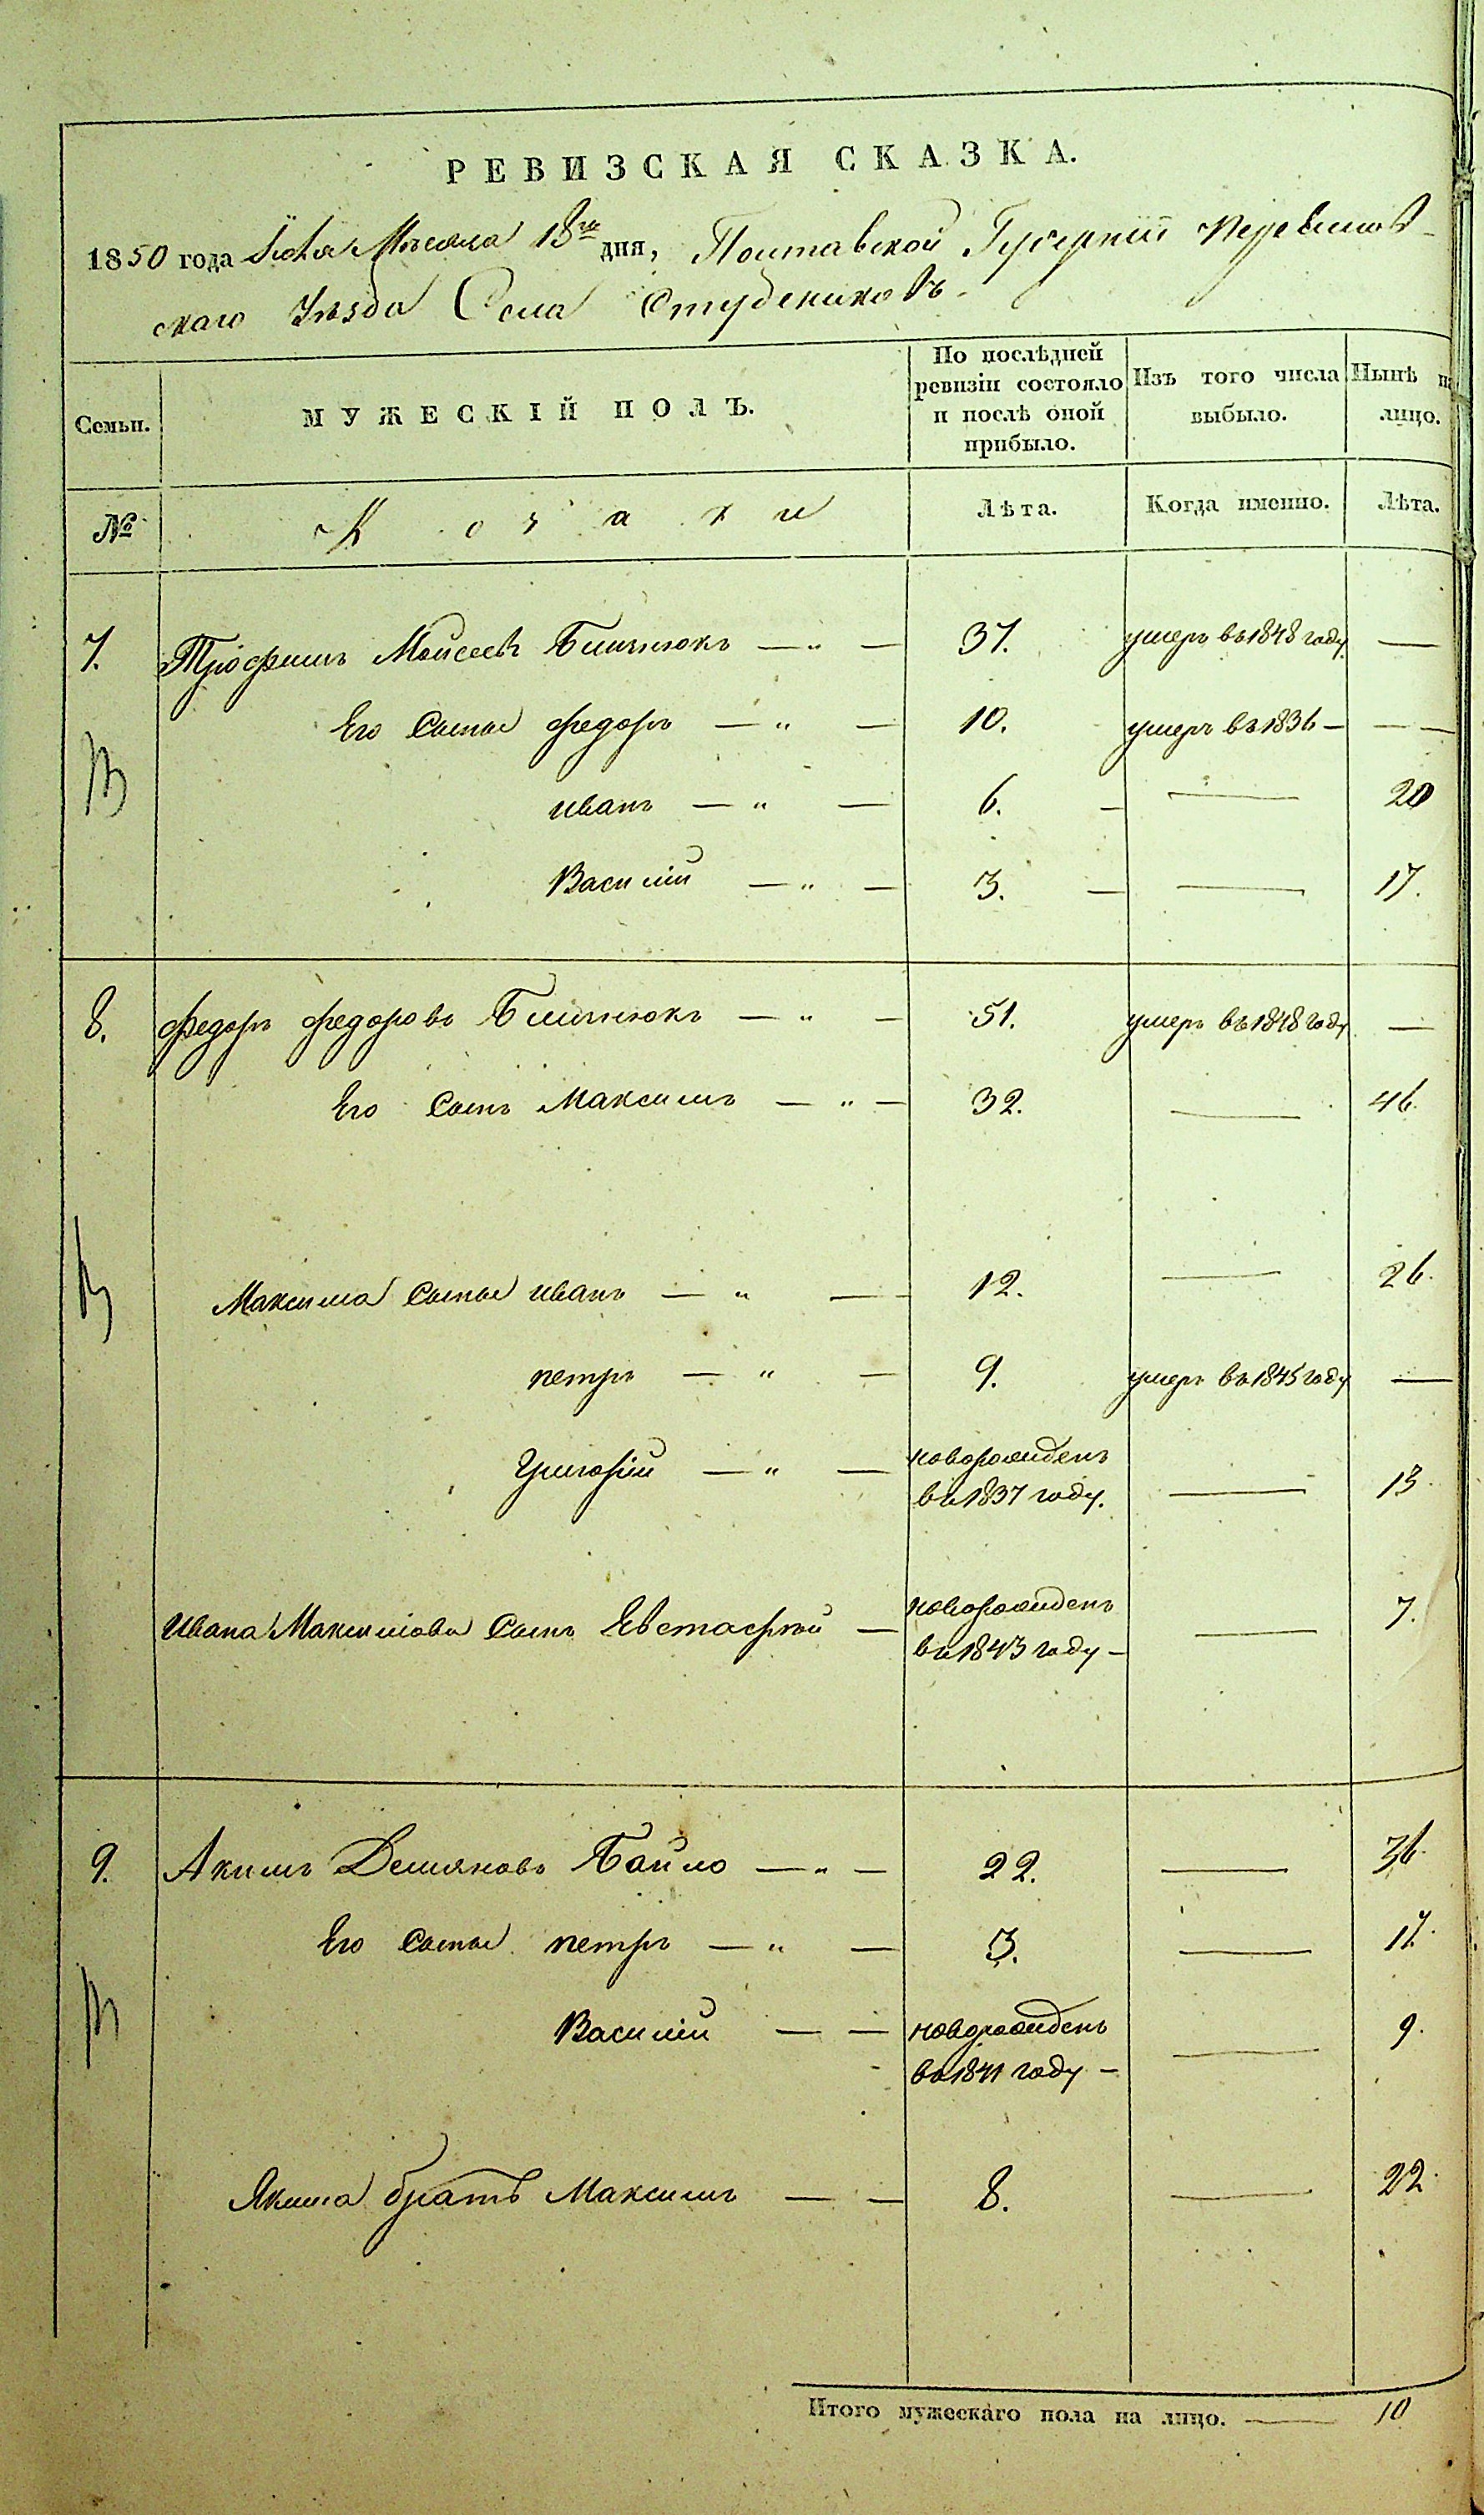 РЕВИЗСКАЯ СКАЗКА.
1850 года Мѣсяца 18го дня, Полтавской Губерніи Переяслов-
скаго Уѣзда Села Студениковъ.
Семьи.
МУЖЕСКІЙ ПОЛЪ.
По послѣдней ревизіи состояло и послѣ оной прибыло.
Изъ того числа выбыло.
Нынѣ на лицо.
№
Козаки
Лѣта.
Когда именно.
Лѣта.
7. Трофимъ Моисеевъ — „ — 37. умеръ въ 1848 году —
Его Сыны Федоръ — „ — 10. умеръ въ 1836 — — —
Иванъ — „ — 6. — — 20
Василій — „ — 3. — — 17.
8. Федоръ Федоровъ — „ — 51. умеръ въ 1848 году —
Его Сынъ Максимъ — „ — 32. — 46.
Максима Сыны Иванъ — „ — 12. — 26.
Петръ — „ — 9. умеръ въ 1845 году —
Григорій — „ — новорожденъ
въ 1837 году. — 13
Ивана Максимова Сынъ Евстафій — новорожденъ
въ 1843 году — — 7.
9. Акимъ Демяновъ Байло — „ — 22. — 36.
Его Сыны Петръ — „ — 3. — 17.
Василій — — новорожденъ
въ 1841 году — — 9.
Якима братъ Максимъ — — 8. — 22
Итого мужескаго пола на лицо. — 10